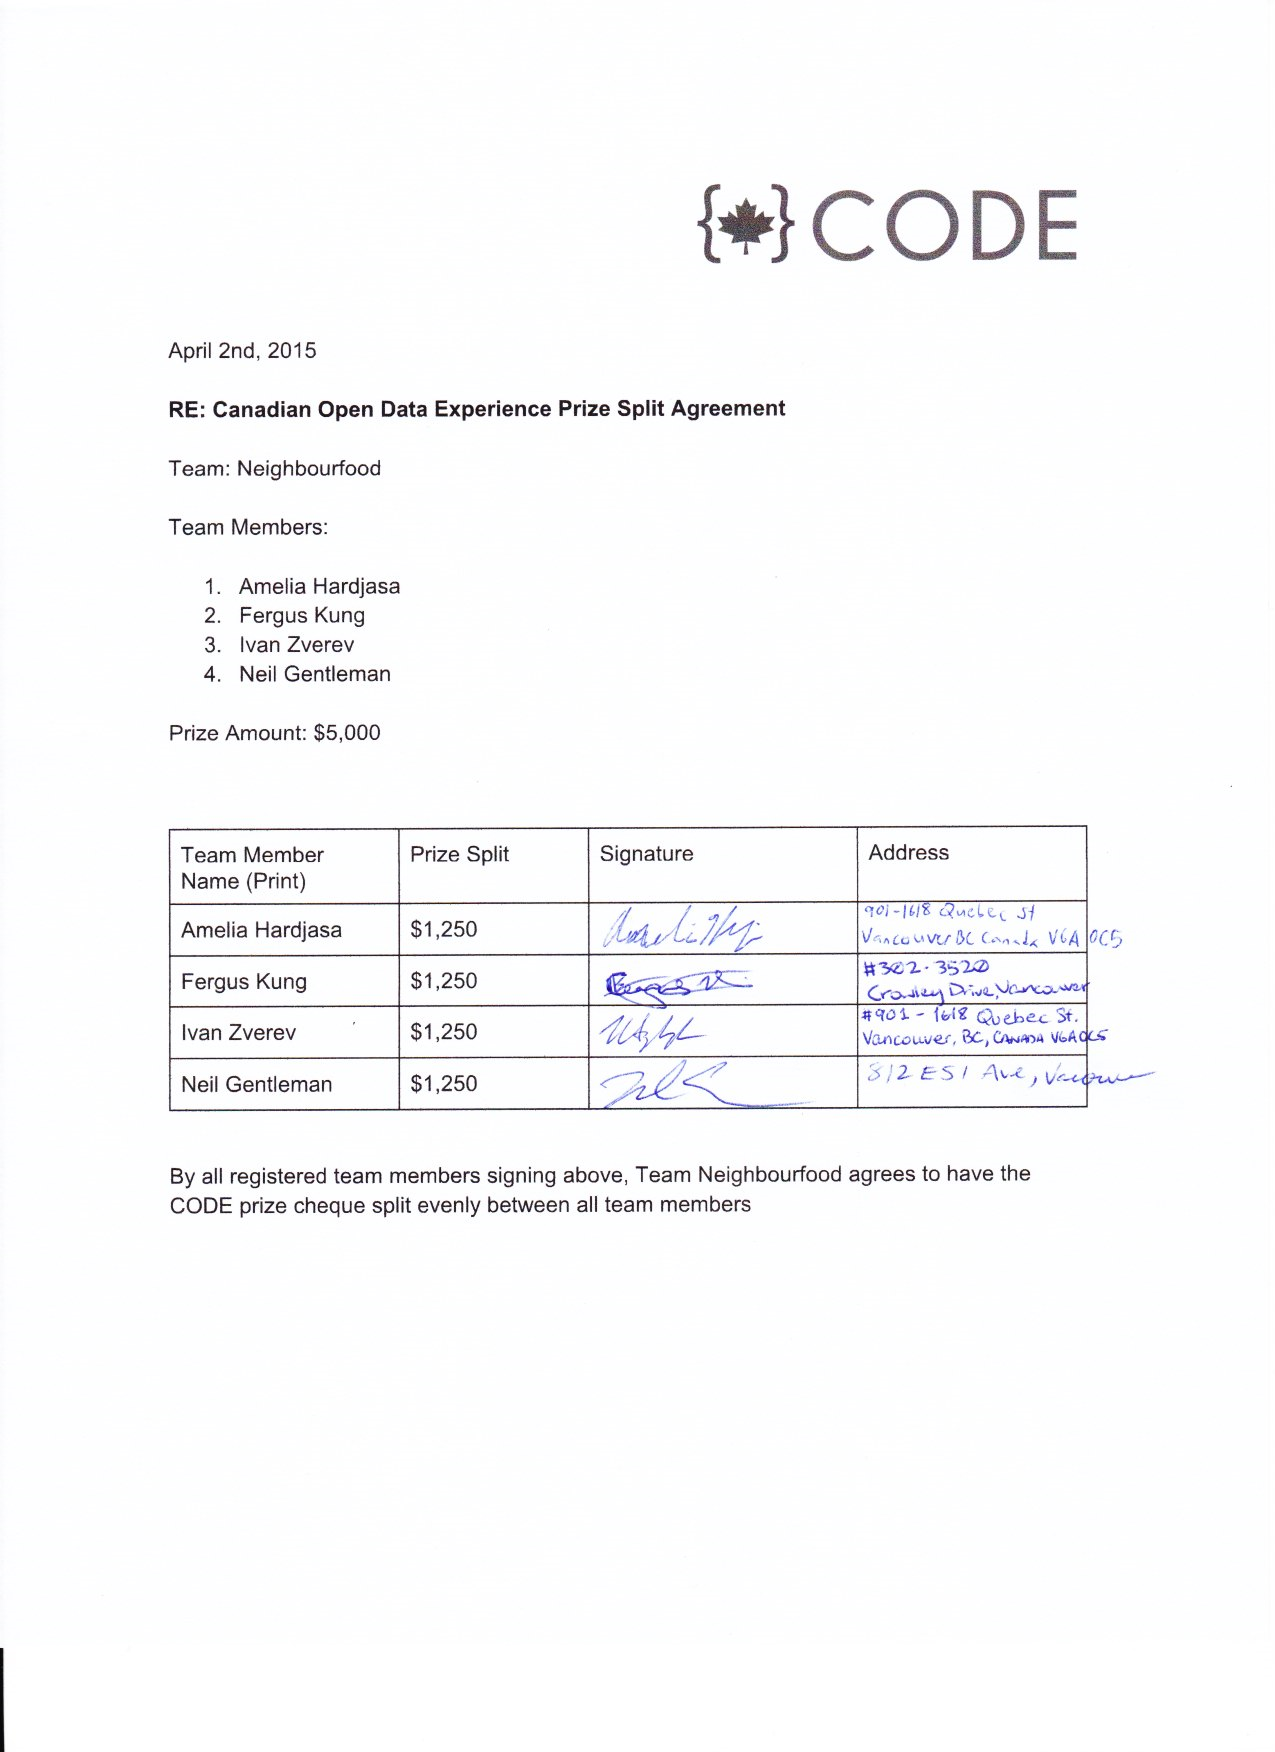 { } CODE
April 2nd, 2015
RE: Canadian Open Data Experience Prize Split Agreement
Team: Neighbourfood
Team Members:
1. Amelia Hardjasa
2. Fergus Kung
3. Ivan Zverev
4. Neil Gentleman
Prize Amount: $5,000
Team Member Name (Print) Prize Split Signature Address
Amelia Hardjasa $1,250 901-1618 Quebec St
Vancouver BC Canada V6A 0C5
Fergus Kung $1,250 #302-3520
Drive, Vancouver
Ivan Zverev $1,250 #901 - 1618 Quebec St.
Vancouver, BC, CANADA V6A 0C5
Neil Gentleman $1,250 812 E 51 Ave, Vancouver
By all registered team members signing above, Team Neighbourfood agrees to have the
CODE prize cheque split evenly between all team members